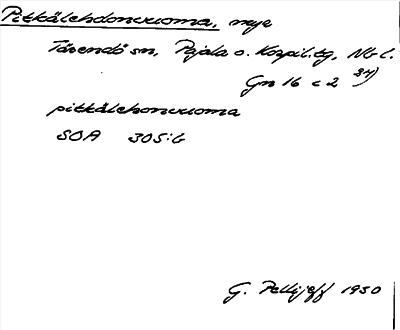 Pitkälehdonvuoma, myr
Tärendö sn, Pajala o. Korpil. tg, Nb l.
Gn 16 c 2 34)
pitkälehonvuoma
SOA 305:6
G. Pellijeff 1950